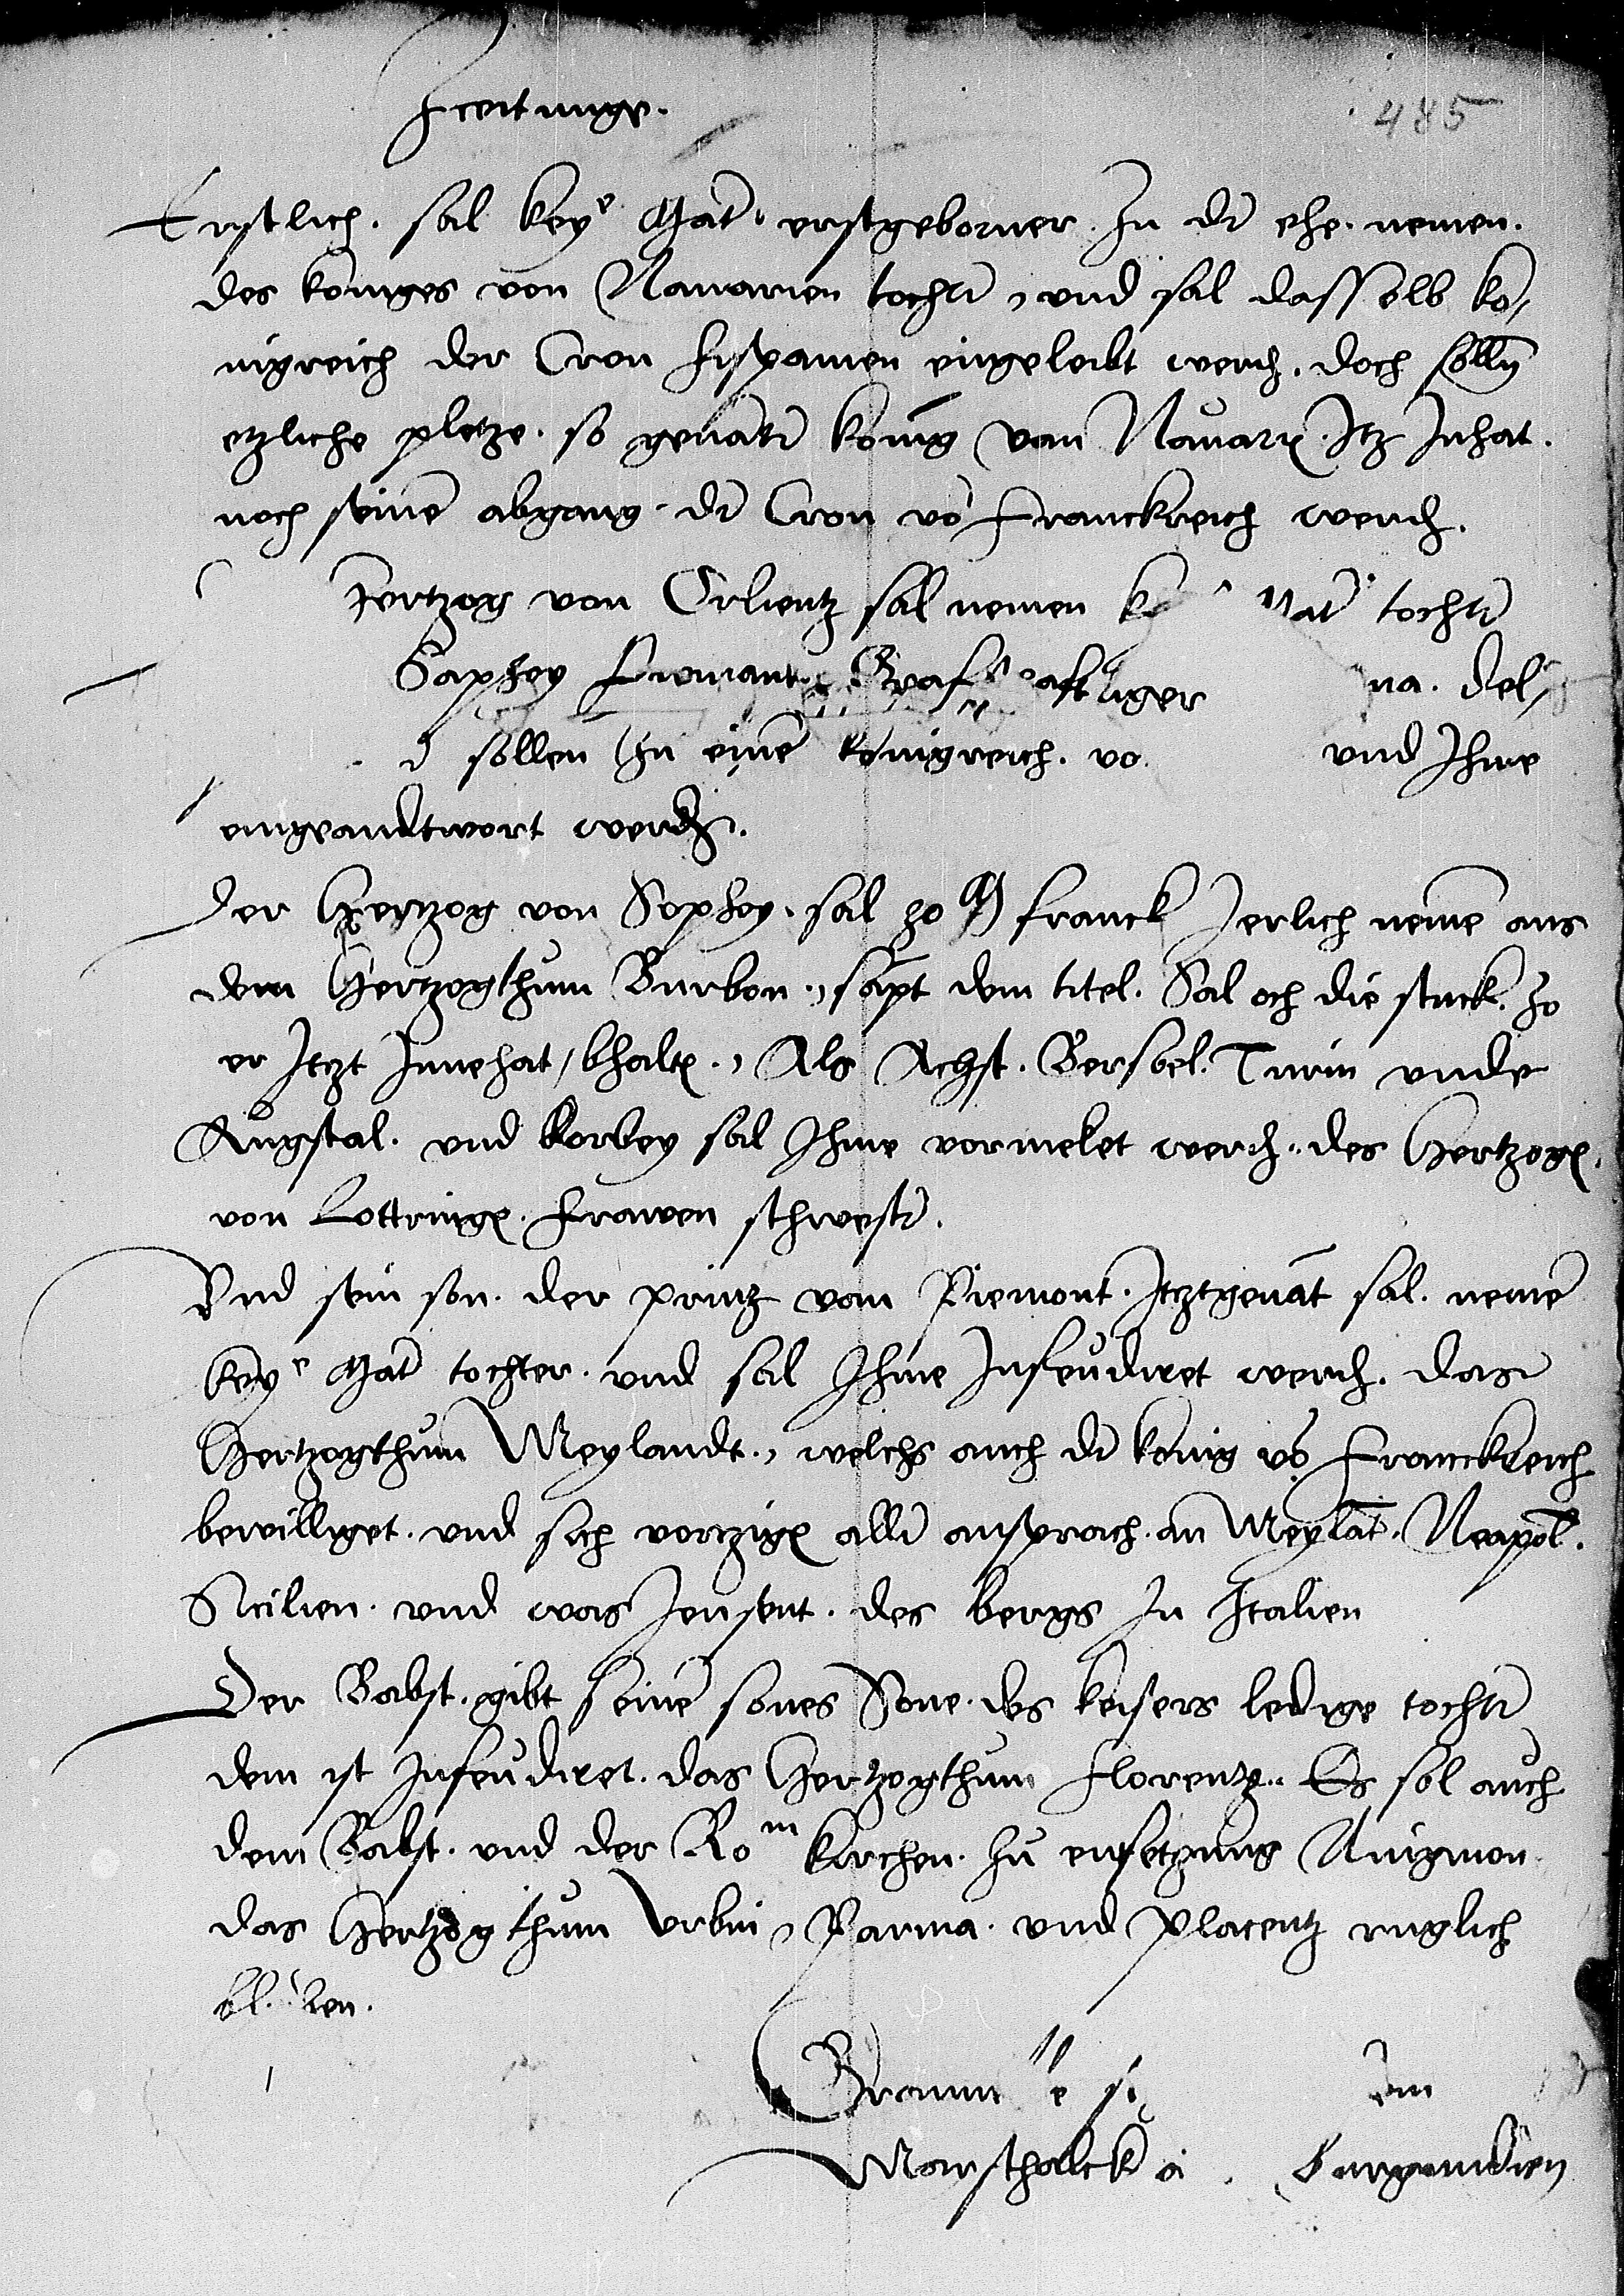 Zceitunge.
485
Erstlich. sal keyr Mat. erstgeborner. In dr ehe. nemen.
des koniges von Navarren tochtr, und sal dasselb ko/
nigreich der Cron Hispanien eingeleibt werdn. doch sollen
etzliche pletze. so genatr konig von Navarrn. Itz Inhat.
noch seine abgang. dr Cron vo Franckreich werdn.
Hertzog von Orlientz sal nemen Mat tochtr
Saphoy und
sollen In eine konigreich. vo und Ihme
eingeandtwort werdn.
Der Hertzog von Sophoy. sal 30 M franck Jerlich neme aus
dem Hertzogthum Burbon., sapt dem titel. Sal och die stuck. so
er Itzt Innehat, bhaltn., Als Achst. Versel. Turin unde
Augstal. und korbey sal Ihme vormelet werdn. des Hertzogn.
von Lottringn. Frawen schwestr.
Und sein son. der prinz vom Piemont. Itztgenat sal. neme
keyr Mat tochter. und sal Ihme Infeudiret werdn. das
Hertzogthum Meylandt., welchs auch dr konig vo Franckreich
bewilliget. und sich vorzign allr ansprach. an Meylat. Neapol.
Sicilien. und was Jensent. des bergs In Italien
Der Babst. gibt seine sones Sone. des keisers ledige tochtr
dem ist Infeudiret. das Hertzogthum Florentz. Es sol auch
dem Babst. und der Rom kirchen. zu ersetzung Avignion.
das Hertzogthum Urbin, Parma. und Placentz
bl..ben.
Marschalck Burgundien